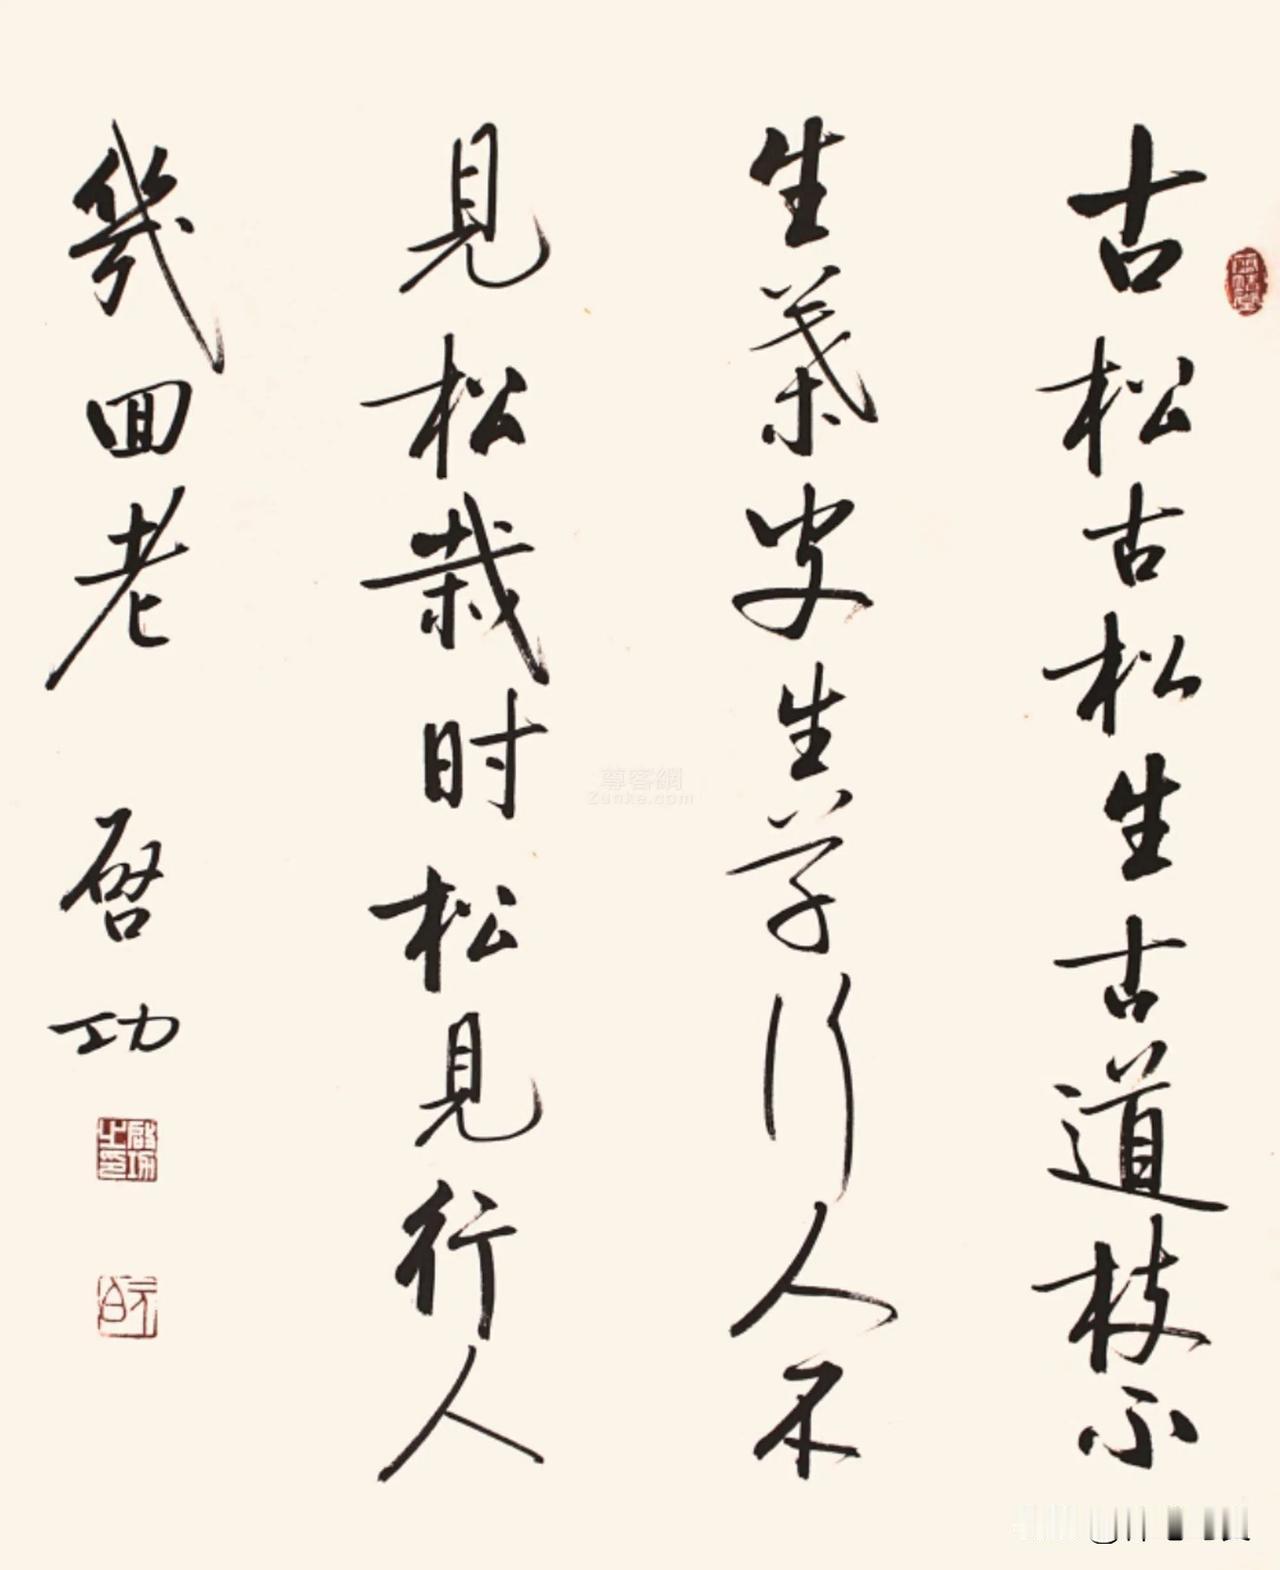 古松古松生古道枝不
生葉皮生草行人不
見松栽时松見行人
幾回老
啓功
啓功之印
尊客網
Zunke.com